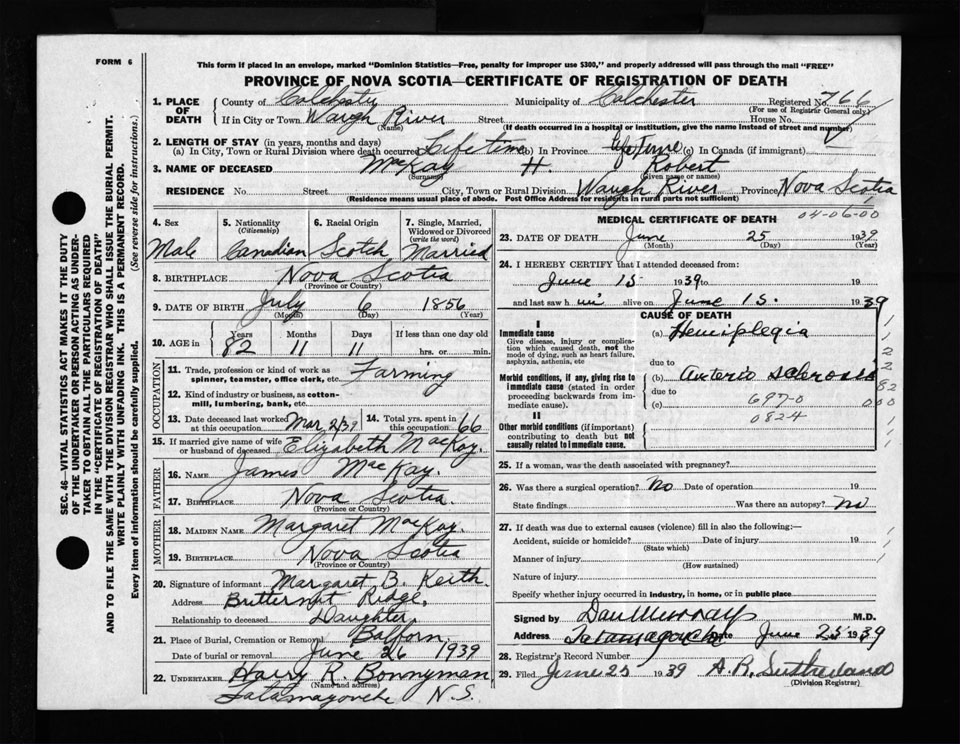 FORM 6
This form if placed in an envelope, marked "Dominion Statistics—Free, penalty for improper use $300," and properly addressed will pass through the mail "FREE"
PROVINCE OF NOVA SCOTIA—CERTIFICATE OF REGISTRATION OF DEATH
1. PLACE OF DEATH County of Colchester Municipality of Colchester Registered No. 766
(For use of Registrar General only)
If in City or Town Waugh River Street House No.
(Name) (If death occurred in a hospital or institution, give the name instead of street and number)
2. LENGTH OF STAY (in years, months and days)
(a) In City, Town or Rural Division where death occurred Life time (b) In Province Life Time (c) In Canada (if immigrant)
3. NAME OF DECEASED McKay H. Robert
(Surname) (Given name or names)
RESIDENCE No. Street City, Town or Rural Division Waugh River Province Nova Scotia
(Residence means usual place of abode. Post Office Address for residents in rural parts not sufficient)
4. Sex Male
5. Nationality (Citizenship) Canadian
6. Racial Origin Scotch
7. Single, Married, Widowed or Divorced (write the word) Married
8. BIRTHPLACE Nova Scotia
(Province or Country)
9. DATE OF BIRTH July 6 1856
(Month) (Day) (Year)
10. AGE in Years 82 Months 11 Days 11 If less than one day old hrs. or min.
OCCUPATION
11. Trade, profession or kind of work as spinner, teamster, office clerk, etc. Farming
12. Kind of industry or business, as cotton-mill, lumbering, bank, etc.
13. Date deceased last worked at this occupation Mar 2/39
14. Total yrs. spent in this occupation 66
15. If married give name of wife or husband of deceased Elizabeth MacKay.
FATHER
16. NAME James MacKay.
17. BIRTHPLACE Nova Scotia.
(Province or Country)
MOTHER
18. MAIDEN NAME Margaret MacKay.
19. BIRTHPLACE Nova Scotia
(Province or Country)
20. Signature of informant Margaret B. Keith.
Address Butternut Ridge.
Relationship to deceased Daughter
21. Place of Burial, Cremation or Removal Balforn.
Date of burial or removal June 26 1939
22. UNDERTAKER Harry R. Bonnyman
(Name and address)
Tatamagouche N.S.
MEDICAL CERTIFICATE OF DEATH
04-06-00
23. DATE OF DEATH June 25 1939
(Month) (Day) (Year)
24. I HEREBY CERTIFY that I attended deceased from:
June 15 1939 to 19
and last saw him alive on June 15. 1939
CAUSE OF DEATH
I
Immediate cause (a) Hemiplegia
Give disease, injury or complication which caused death, not the mode of dying, such as heart failure, asphyxia, asthenia, etc
due to
Morbid conditions, if any, giving rise to immediate cause (stated in order proceeding backwards from immediate cause).
(b) Arterio sclerosis
due to 697-0
(c) 0824
II
Other morbid conditions (if important) contributing to death but not causally related to immediate cause.
25. If a woman, was the death associated with pregnancy?
26. Was there a surgical operation? No Date of operation 19
State findings Was there an autopsy? No
27. If death was due to external causes (violence) fill in also the following:—
Accident, suicide or homicide? Date of injury 19
(State which)
Manner of injury
(How sustained)
Nature of injury
Specify whether injury occurred in industry, in home, or in public place
Signed by Dan Murray M.D.
Address Tatamagouche Date June 25 1939
28. Registrar's Record Number
29. Filed June 25 1939 A. R. Sutherland
(Division Registrar)
SEC. 46—VITAL STATISTICS ACT MAKES IT THE DUTY OF THE UNDERTAKER OR PERSON ACTING AS UNDERTAKER TO OBTAIN ALL THE PARTICULARS REQUIRED IN THE "CERTIFICATE OF REGISTRATION OF DEATH"
AND TO FILE THE SAME WITH THE DIVISION REGISTRAR WHO SHALL ISSUE THE BURIAL PERMIT.
WRITE PLAINLY WITH UNFADING INK. THIS IS A PERMANENT RECORD.
Every item of information should be carefully supplied. (See reverse side for instructions.)